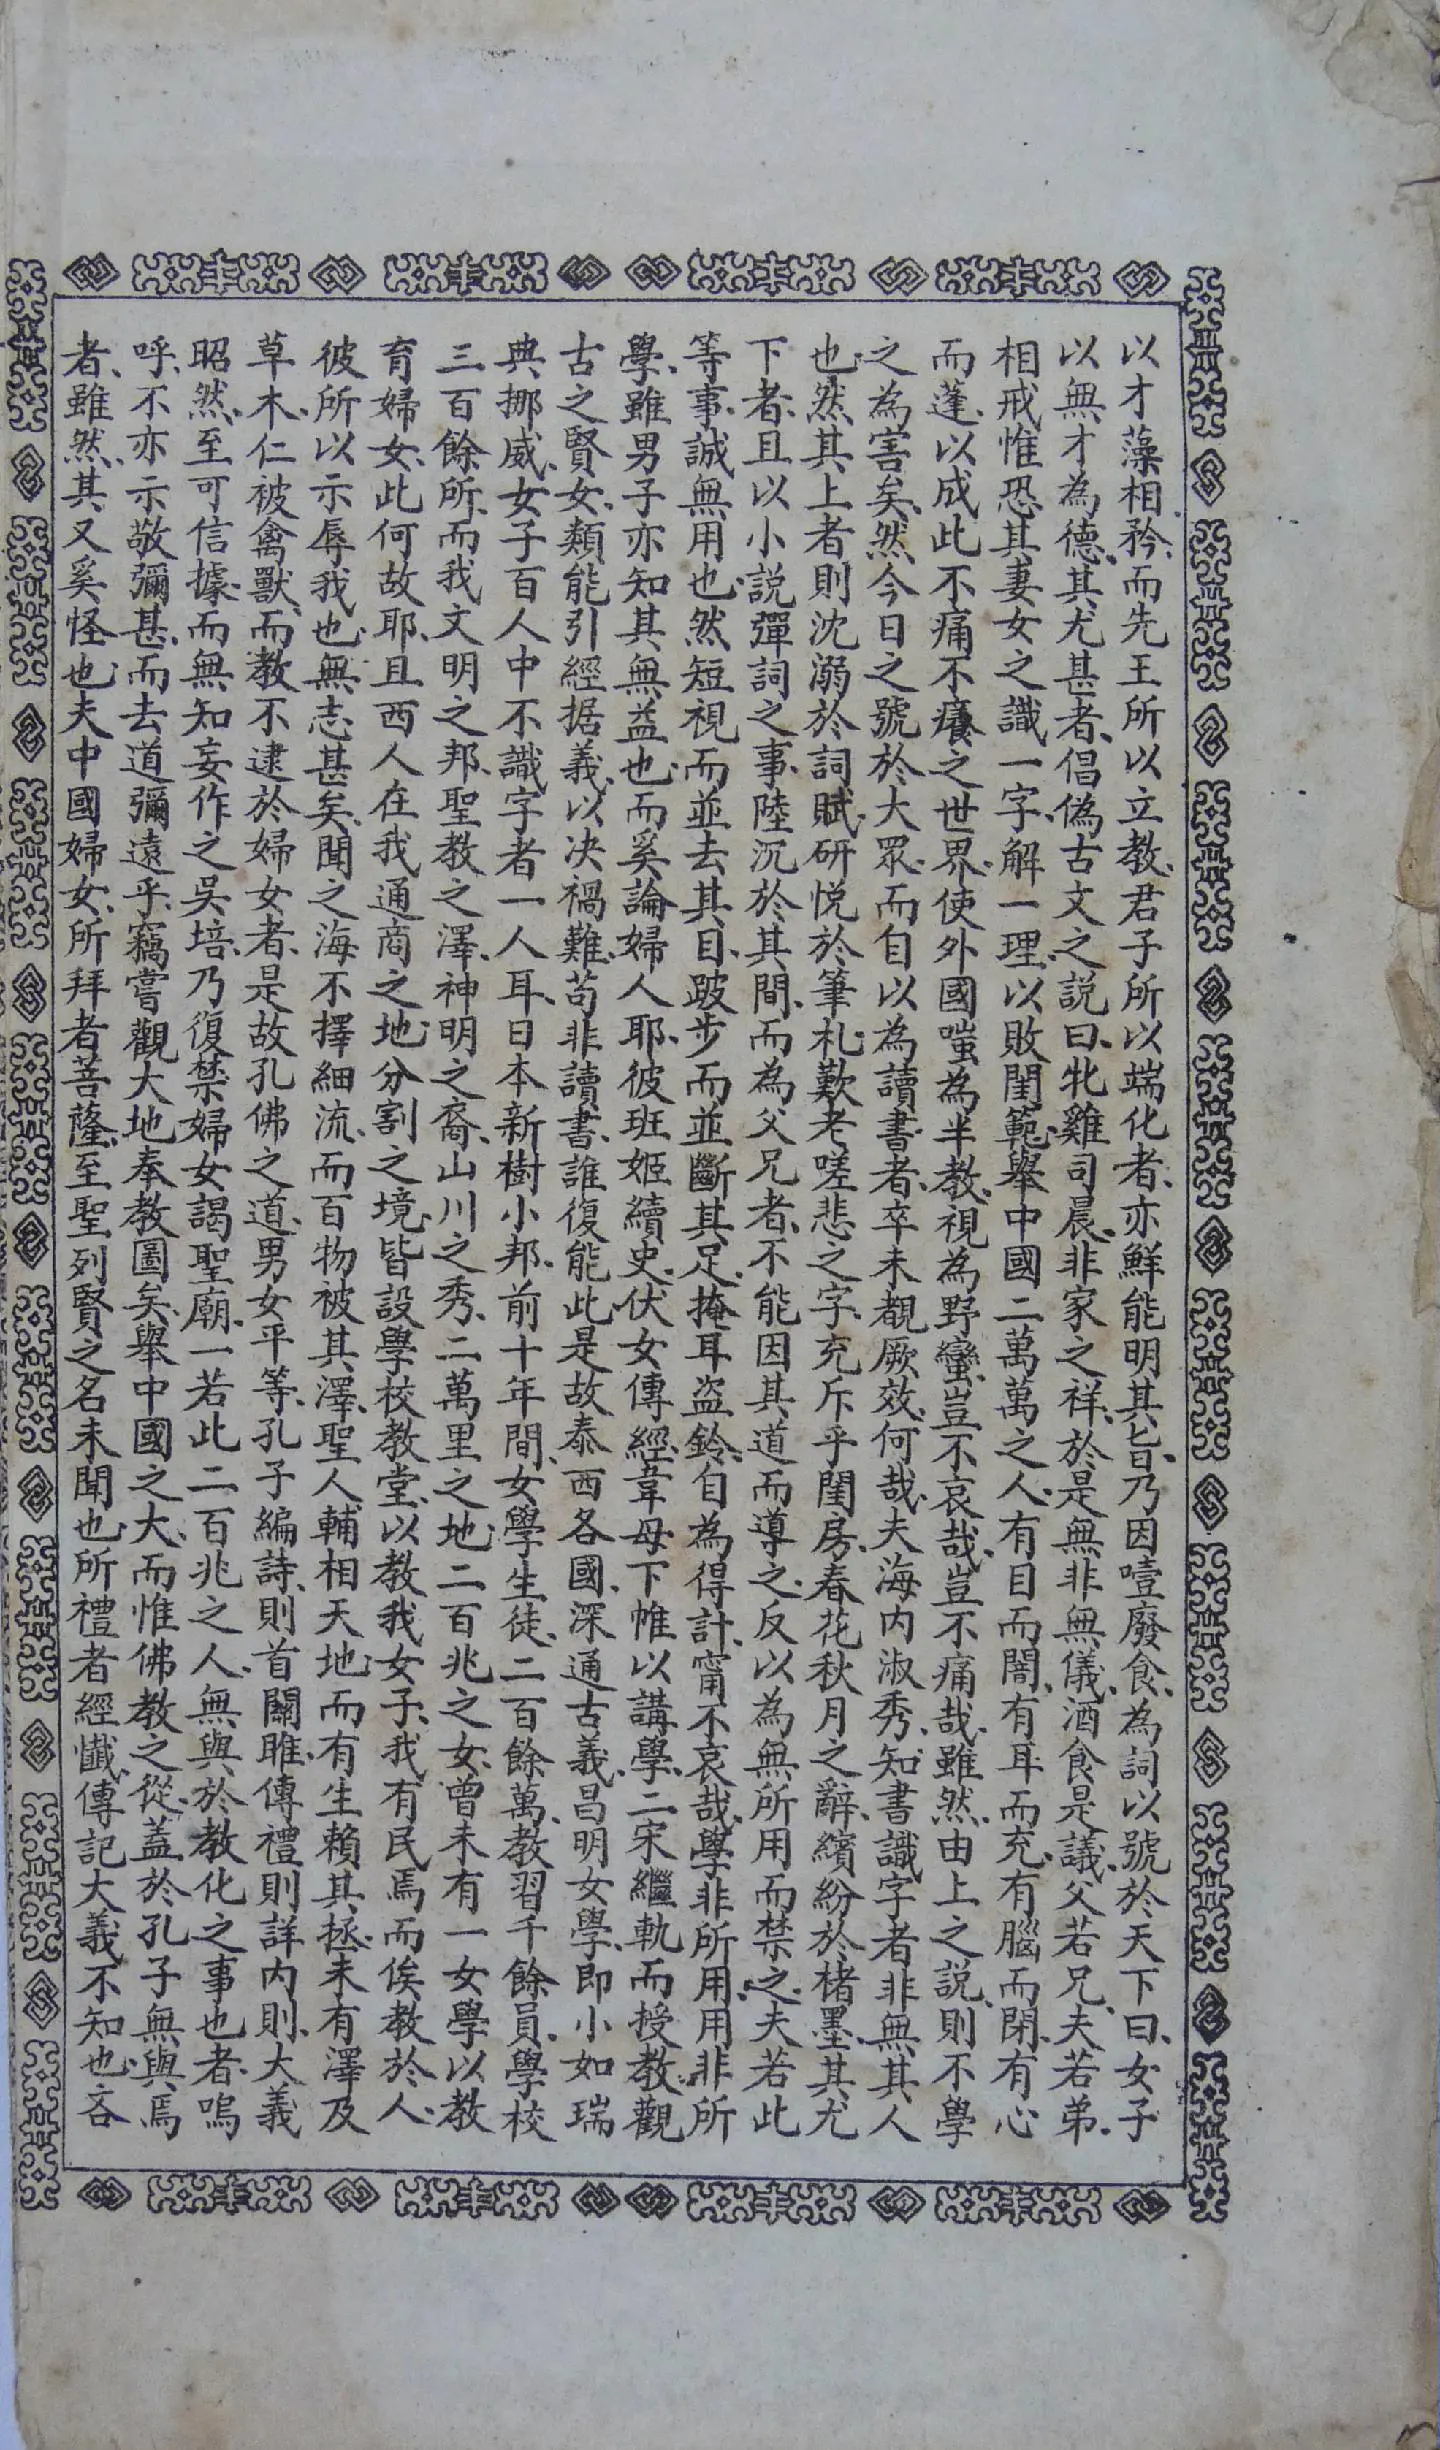 以才藻相矜、而先王所以立教、君子所以端化者、亦鮮能明其旨、乃因噎廢食、為詞以號於天下曰、女子
以無才為德、其尤甚者、倡偽古文之説曰、牝雞司晨、非家之祥、於是無非無儀、酒食是議、父若兄、夫若弟、
相戒惟恐其妻女之識一字、解一理、以敗閨範、舉中國二萬萬之人、有目而闇、有耳而充、有腦而閉、有心
而蓬、以成此不痛不癢之世界、使外國嗤為半教、視為野蠻、豈不哀哉、豈不痛哉、雖然、由上之説、則不學
之為害矣、然今日之號於大眾、而自以為讀書者、卒未覩厥效、何哉、夫海内淑秀、知書識字者、非無其人
也、然其上者則沈溺於詞賦、研悦於筆札、歎老嗟悲之字、充斥乎閨房、春花秋月之辭、繽紛於楮墨、其尤
下者、且以小説彈詞之事、陸沉於其間、而為父兄者、不能因其道而導之、反以為無所用而禁之、夫若此
等事、誠無用也、然短視而並去其目、跛步而並斷其足、掩耳盜鈴、自為得計、甯不哀哉、學非所用、用非所
學、雖男子亦知其無益也、而奚論婦人耶、彼班姬續史、伏女傳經、韋母下帷以講學、二宋繼軌而授教、觀
古之賢女、類能引經据義、以决禍難、苟非讀書、誰復能此、是故泰西各國、深通古義、昌明女學、即小如瑞
典挪威、女子百人中不識字者一人耳、日本新樹小邦、前十年間、女學生徒、二百餘萬、教習千餘員、學校
三百餘所、而我文明之邦、聖教之澤、神明之裔、山川之秀、二萬里之地、二百兆之女、曾未有一女學以教
育婦女、此何故耶、且西人在我通商之地、分割之境、皆設學校教堂、以教我女子、我有民焉、而俟教於人、
彼所以示辱我也、無志甚矣、聞之海不擇細流、而百物被其澤、聖人輔相天地、而有生賴其拯、未有澤及
草木、仁被禽獸、而教不逮於婦女者、是故孔佛之道、男女平等、孔子編詩、則首關雎、傳禮則詳内則、大義
昭然、至可信據、而無知妄作之吳培、乃復禁婦女謁聖廟、一若此二百兆之人、無與於教化之事也者、嗚
呼、不亦示敬彌甚、而去道彌遠乎、竊嘗觀大地奉教圖矣、舉中國之大、而惟佛教之從、蓋於孔子無與焉
者、雖然、其又奚怪也、夫中國婦女、所拜者菩薩、至聖列賢之名、未聞也、所禮者經懺、傳記大義、不知也、吝